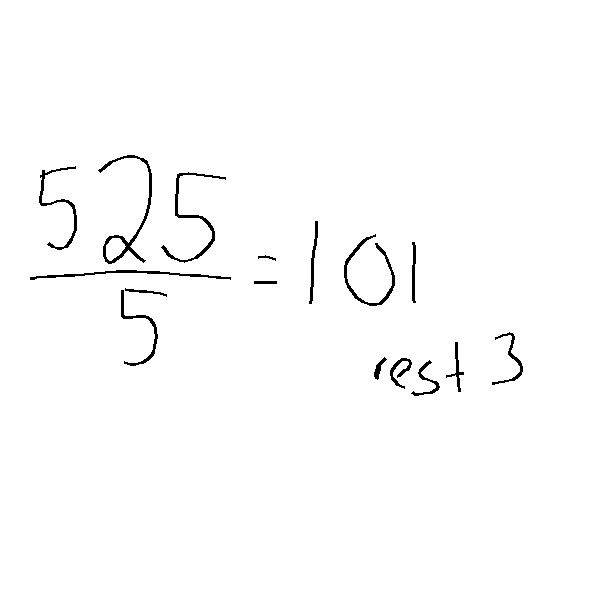 525/5 = 101
rest 3